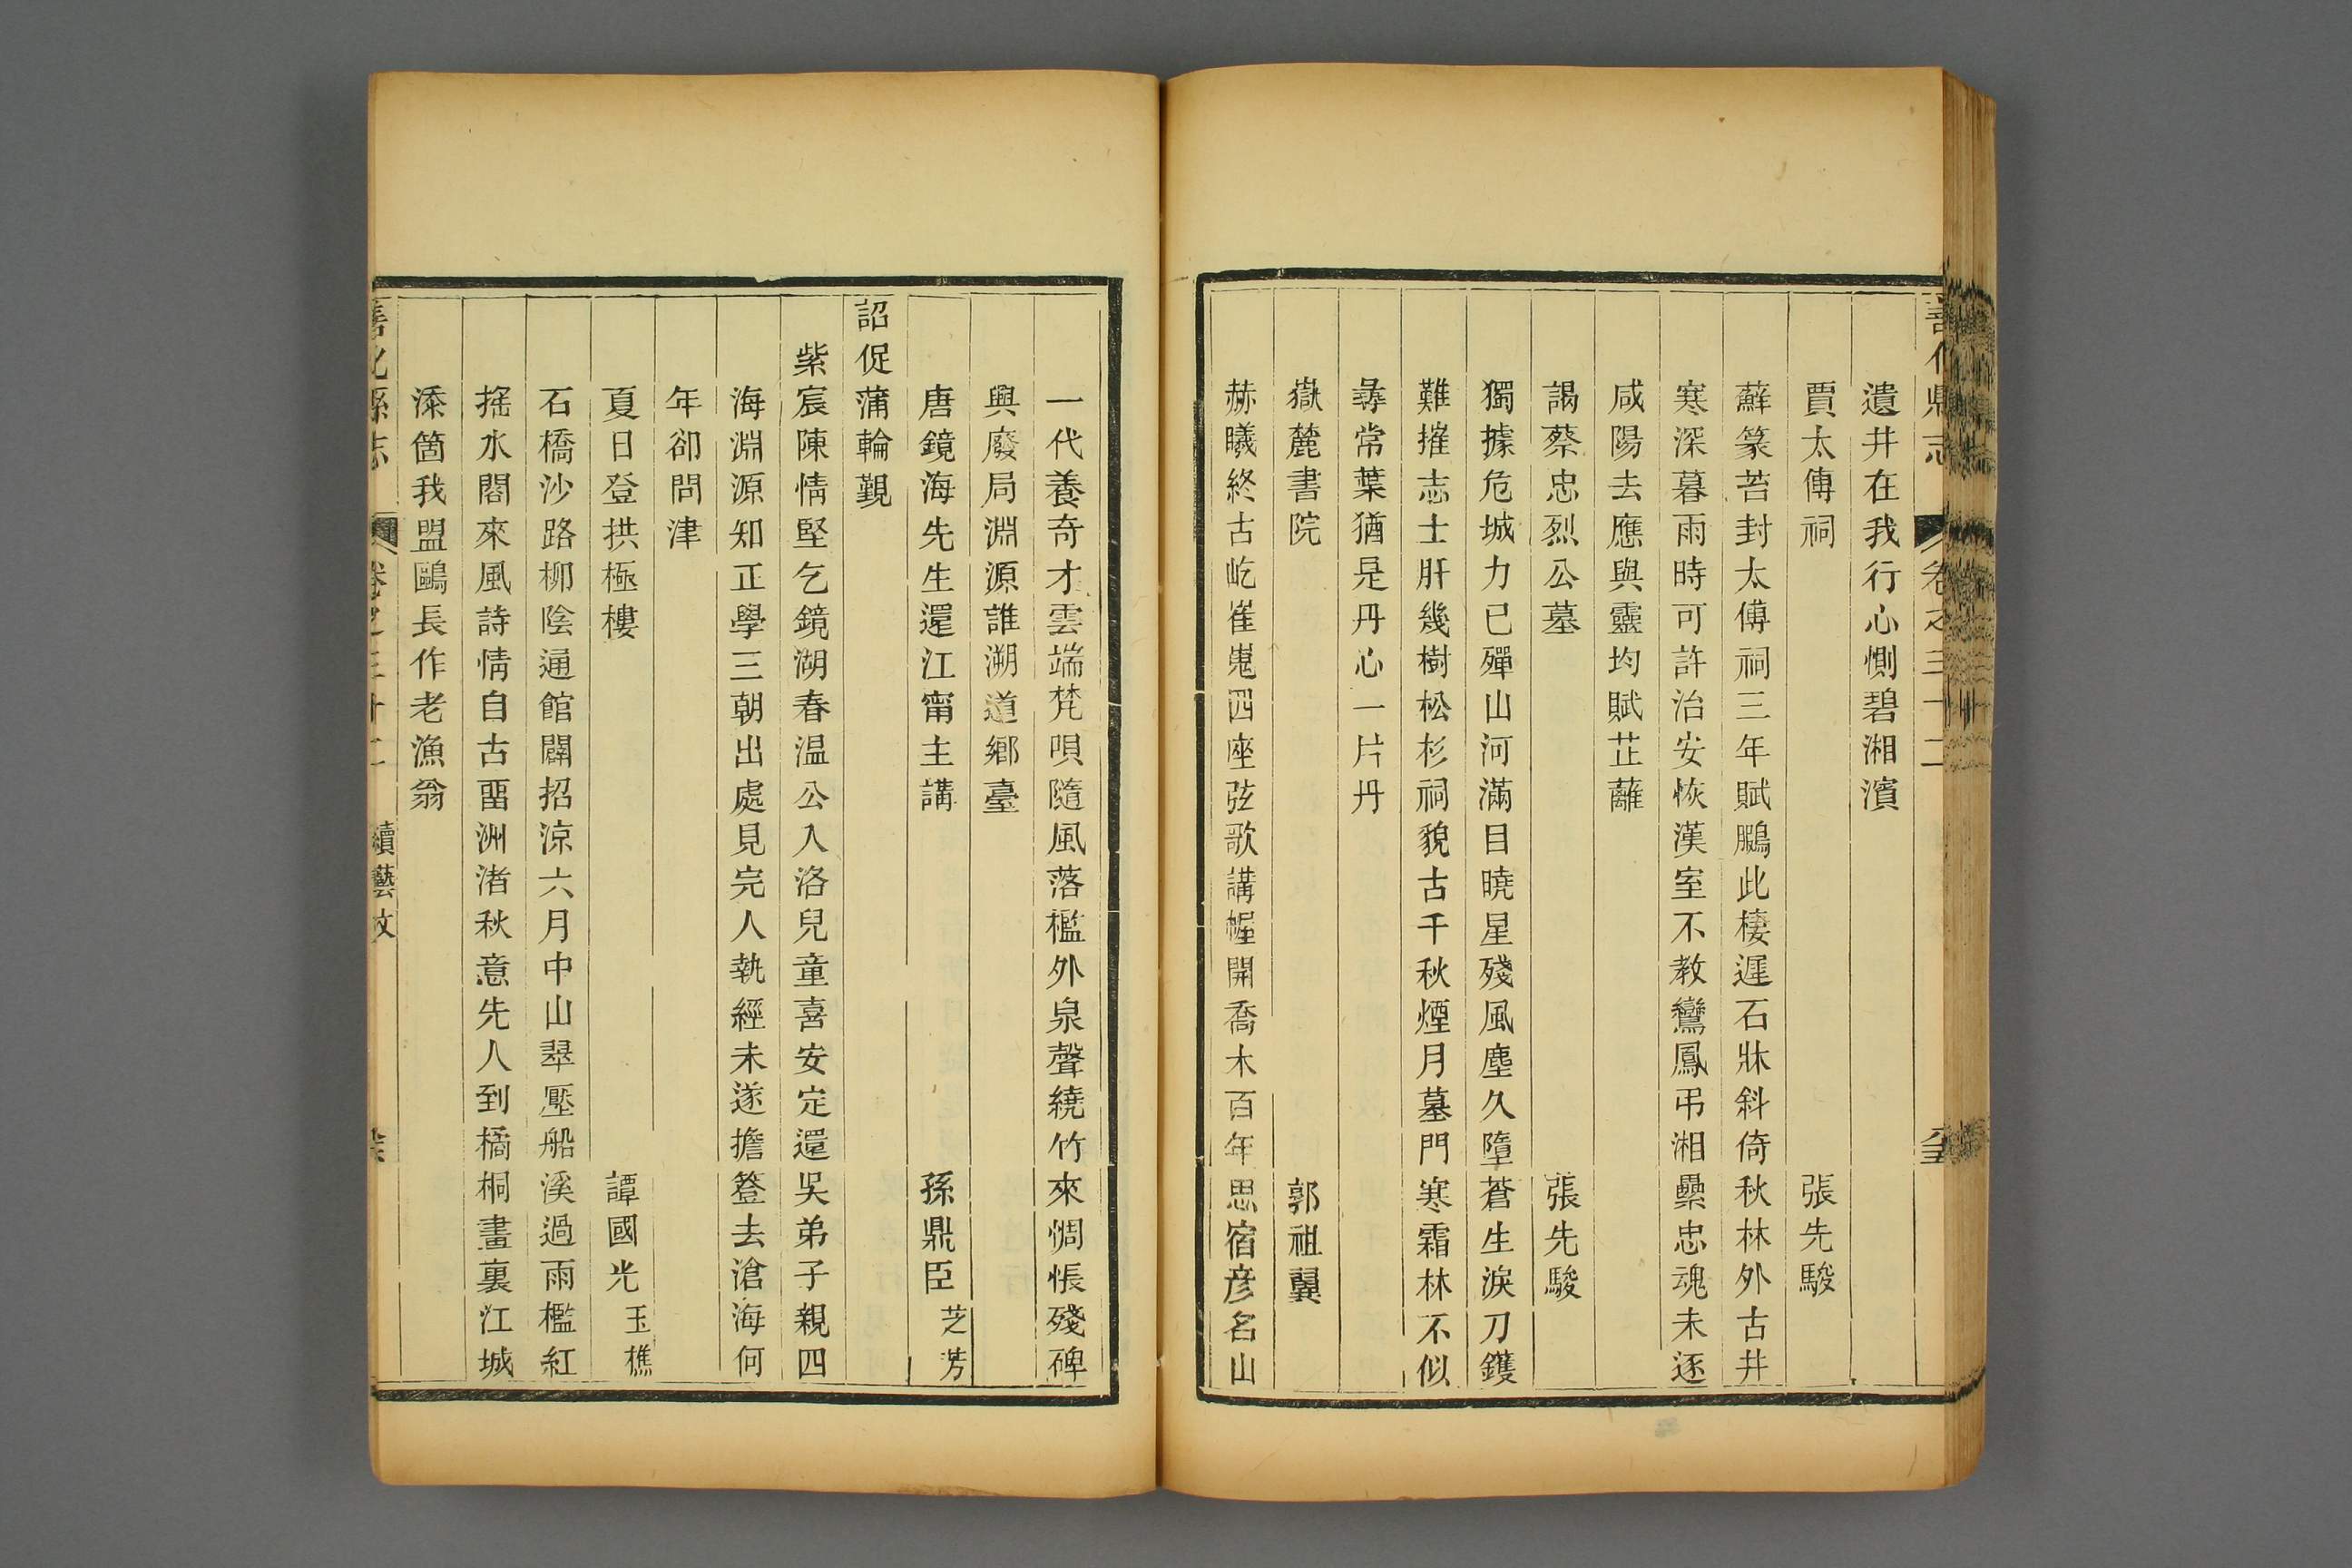 善化縣志 卷之三十二
遺井在我行心惻碧湘濱
賈太傅祠 張先駿
蘇篆苔封太傅祠三年賦鵬此棲遲石牀斜倚秋林外古井
寒深暮雨時可許治安恢漢室不教鸞鳳弔湘纍忠魂未逐
咸陽去應與靈均賦芷蘺
謁蔡忠烈公墓 張先駿
獨據危城力已殫山河滿目曉星殘風塵久墮蒼生淚刀鑊
難摧志士肝幾樹松杉祠貌古千秋煙月墓門寒霜林不似
尋常葉猶是丹心一片丹
嶽麓書院 郭祖翼
赫曦終古屹崔嵬四座弦歌講幄開喬木百年思宿彦名山
一代養奇才雲端梵唄隨風落檻外泉聲繞竹來惆悵殘碑
興廢局淵源誰溯道鄉臺
唐鏡海先生還江甯主講 孫鼎臣芝芳
詔促蒲輪覲
紫宸陳情堅乞鏡湖春温公入洛兒童喜安定還吳弟子親四
海淵源知正學三朝出處見完人執經未遂擔簦去滄海何
年卻問津
夏日登拱極樓 譚國光玉樵
石橋沙路柳陰通館闢招涼六月中山翠壓船溪過雨檻紅
搖水閣來風詩情自古畱洲渚秋意先人到橘桐畫裏江城
添箇我盟鷗長作老漁翁
善化縣志 卷之三十二 續藝文